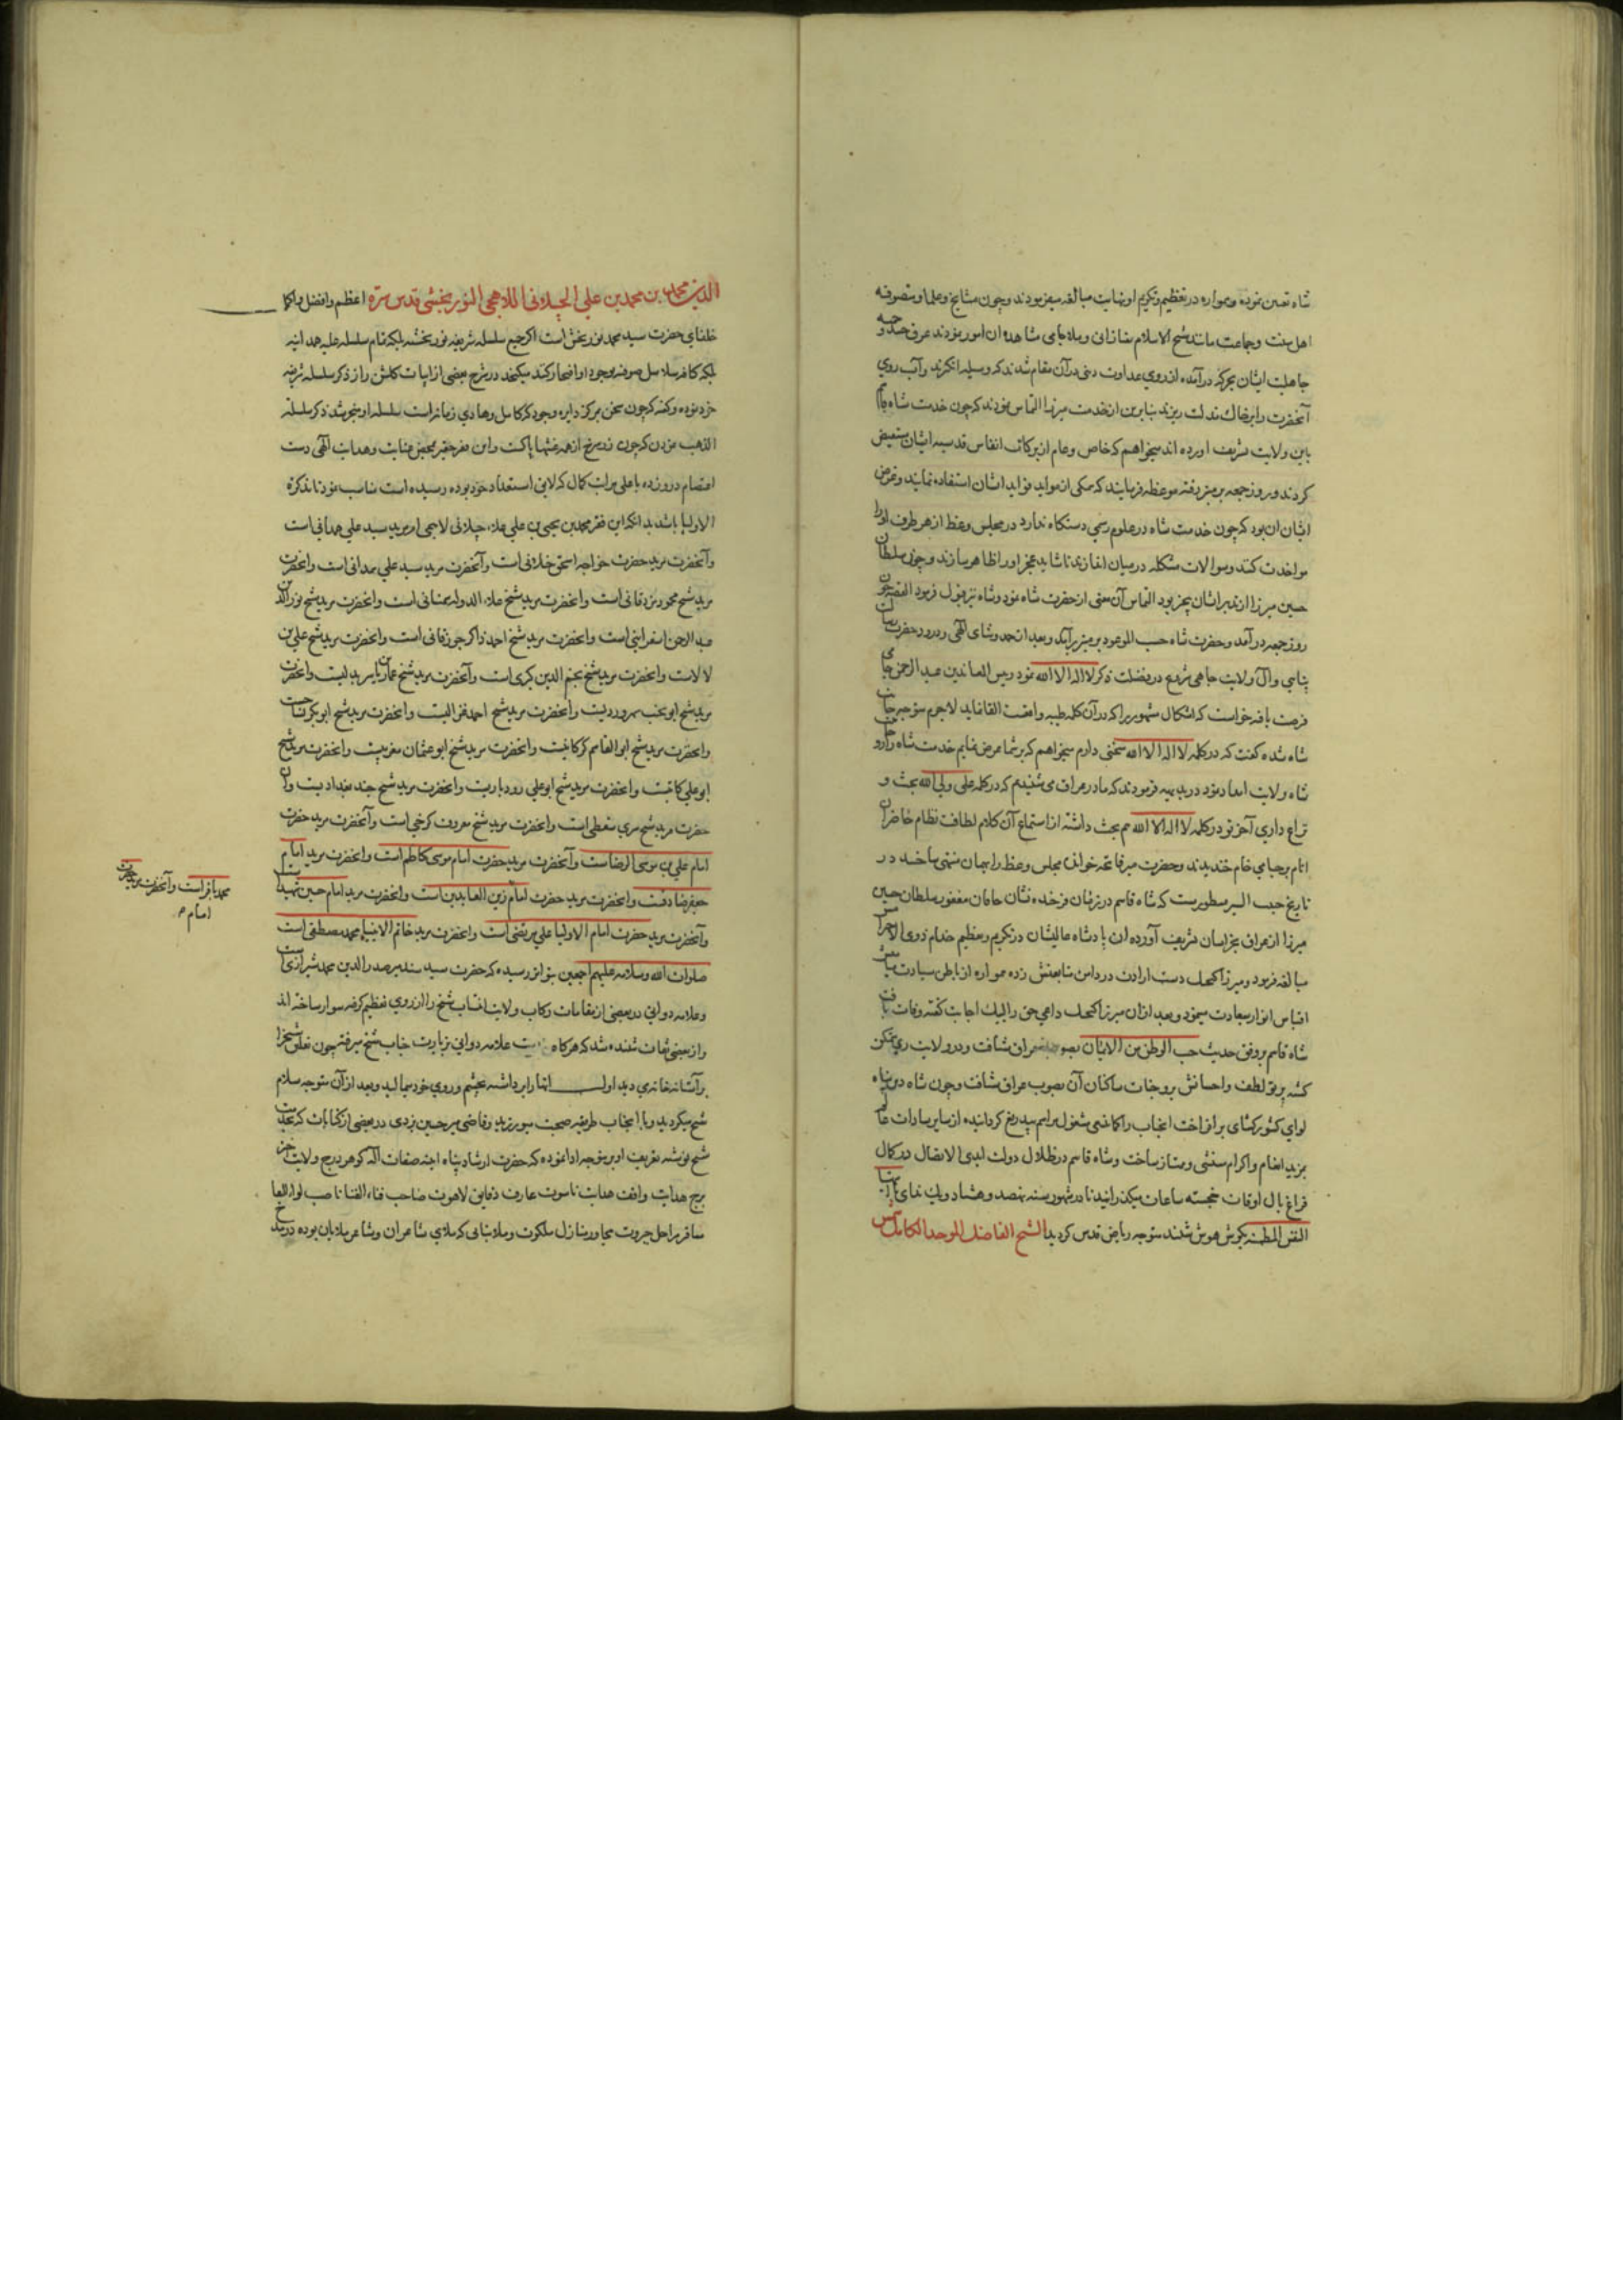 شاه تعیین نموده و همواره در تعظیم و تکریم او نهایت مبالغه میفرمودند و چون مشایخ و علما و متصوفه
اهل سنت و جماعت مانند شیخ الاسلام تفتازانی و ملا جامی مشاهده آن امور نمودند عرق حسد و حمیه
جاهلیت ایشان بحرکة درآمده از روی عداوت دینی در آن مقام شدند که وسیله انگیزند و آب روی
آنحضرت را بر خاک مذلت ریزند بنابرین از خدمت میرزا التماس نمودند که چون خدمت شاه قاسم
باین ولایت تشریف آورده اند میخواهیم که خاص و عام از برکات انفاس قدسیه ایشان مستفیض
کردند و روز جمعه بر منبر رفته موعظه فرمایند که همگی از مواید فواید ایشان استفاده نمایند و غرض
ایشان آن بود که چون خدمت شاه در علوم رسمی دستگاه ندارد در مجلس وعظ از هر طرف او را
مواخذت کنند و سوالات مشکله در میان اندازند تا شاید عجز او را ظاهر سازند و چون سلطان
حسین میرزا از تدبیر ایشان بیخبر بود التماس آن معنی از حضرت شاه نمود و شاه نیز قبول فرمود القصه چون
روز جمعه درآمد و حضرت شاه حسب الموعود بر منبر برآمد و بعد از حمد و ثنای الهی و درود حضرت رسالت
پناهی و آل ولایت جاهی شروع در فضیلت ذکر لا اله الا الله نمود رئیس المعاندین عبدالرحمن جامی
فرصت یافته خواست که اشکال مشهور را که در آن کلمه طیبه واقعست القا نماید لاجرم متوجه جانب
شاه شده گفت که در کلمه لا اله الا الله سخنی دارم میخواهم که بر شما عرض نمایم خدمت شاه
شاه ولایت امداد نمود در بدیهه فرمودند که ما در عراق می شنیدیم که در کلمه علی ولی الله بحث و
نزاع داری آخر تو در کلمه لا اله الا الله هم بحث داشته از استماع آن کلام لطافت نظام حاضران
تمام بر جامی خام خندیدند و حضرت میر فاتحه خوانده مجلس وعظ را بهمان منتهی ساختند در
تاریخ حبیب السیر مسطورست که شاه قاسم در زمان فرخنده نشان خاقان مغفور سلطان حسین
میرزا از عراق بخراسان تشریف آورده آن پادشاه عالیشان در تکریم و تعظیم خدام ذوی الاحترامش
مبالغه فرمود و میرزا کیجیک دست ارادت در دامن متابعتش زده همواره از باطن سیادت میامنش
اقتباس انوار سعادت مینمود و بعد از آن میرزا کیجیک داعی حق را لبیک اجابت گفته وفات یافت
شاه قاسم بر وفق حدیث حب الوطن من الایمان بصوب عراق شتافت و در ولایت ری متمکن
گشته پرتو لطف و احسانش بر وجنات ساکنان آن بصوب عراق شتافت و چون شاه دین پناه
لوای کشورکشای برافراخت آنجناب را کما ینبغی مشمول مراسم بیدریغ گردانیده از سایر سادات عالم
بمزید انعام و اکرام مستثنی و ممتاز ساخت و شاه قاسم در ظلال دولت ابدی الاتصال در کمال
فراغ بال اوقات خجسته ساعات میگذرانید تا در شهور سنه نهصد و هشتاد و یک ندای یا ایتها
النفس المطمئنة بگوش هوش شنید متوجه ریاض قدس گردید الشیخ الفاضل الموحد الکامل شمس
الدین محمد بن محمد بن علی الجیلانی اللاهجی النوربخشی قدس سره اعظم و افضل و اکمل
خلفای حضرت سید محمد نوربخش است اگر جمیع سلسله شریفه نوربخشیه بلکه تمام سلسله علیه همدانیه
بلکه کافه سلاسل صوفیه بوجود او افتخار کنند میگنجد در شرح بعضی از ابیات گلشن راز ذکر سلسله شریفه
خود نموده و گفته که چون سخن بمرکز دایره وجود که کامل و هادی زمانست سلسله او منجر شد ذکر سلسله
الذهب نمودن که چون زر سرخ از همه غشها پاکست و این فقیر حقیر بمحض عنایت و هدایت الهی دست
اعتصام در و زده باعلی مراتب کمال که لایق استعداد خود بوده رسیده است مناسب نمود تا تذکره
الاولیا باشد بدانکه این فقیر محمد بن یحیی بن علی جیلانی لاهجی ام مرید سید علی همدانی است
وآنحضرت مرید حضرت خواجه اسحق ختلانی است وآنحضرت مرید سید علی همدانی است وآنحضرت
مرید شیخ محمود مزدقانی است وآنحضرت مرید شیخ علاء الدوله سمنانی است وآنحضرت مرید شیخ نورالدین
عبدالرحمن اسفراینی است وآنحضرت مرید شیخ احمد ذاکر جوزقانی است وآنحضرت مرید شیخ علی بن
لالاست وآنحضرت مرید شیخ نجم الدین کبری است وآنحضرت مرید شیخ عمار یاسر بدلیست وآنحضرت
مرید شیخ ابو نجیب سهروردیست وآنحضرت مرید شیخ احمد غزالیست وآنحضرت مرید شیخ ابوبکر نساجست
وآنحضرت مرید شیخ ابوالقاسم گرگانیست وآنحضرت مرید شیخ ابوعثمان مغربیست وآنحضرت مرید شیخ
ابوعلی کاتبست وآنحضرت مرید شیخ ابوعلی رودباریست وآنحضرت مرید شیخ جنید بغدادیست وآن
حضرت مرید شیخ سری سقطی است وآنحضرت مرید شیخ معروف کرخی است وآنحضرت مرید حضرت
امام علی بن موسی الرضاست وآنحضرت مرید حضرت امام موسی کاظم است وآنحضرت مرید امام
جعفر صادقست وآنحضرت مرید حضرت امام زین العابدین است وآنحضرت مرید امام حسین شهید است
محمد باقر است وآنحضرت مرید حضرت
امام
وآنحضرت مرید حضرت امام الاولیا علی مرتضی است وآنحضرت مرید خاتم الانبیاء محمد مصطفی است
صلوات الله وسلامه علیهم اجمعین بتواتر رسیده که حضرت سید سند میر صدرالدین محمد شیرازی
وعلامه دوانی در بعضی از مقامات رکاب ولایت انتساب شیخ را از روی تعظیم گرفته سوار ساخته اند
واز بعضی ثقات شنیده شد که هرگاه علامه دوانی بزیارت جناب شیخ میرفته چون نعلین شیخ را
بر آستانه خانه می دید اول آنها را برداشته بچشم و روی خود میمالید و بعد از آن متوجه سلام
شیخ میگردید و با آنجناب طریقه صحبت میورزید و قاضی میر حسین یزدی در بعضی از کتابات که بخدمت
شیخ نوشته تعریف او برین وجه ادا نموده که حضرت ارشاد پناه آینه صفات اله گوهر درج ولایت اختر
برج هدایت واقف هدایت ناسوت عارف دقایق لاهوت صاحب فناء الفنا ناصب لواء البقا
مسافر مراحل جبروت مجاور منازل ملکوت و ملا بنائی که ملای شاعران و شاعر ملایان بوده در مدح